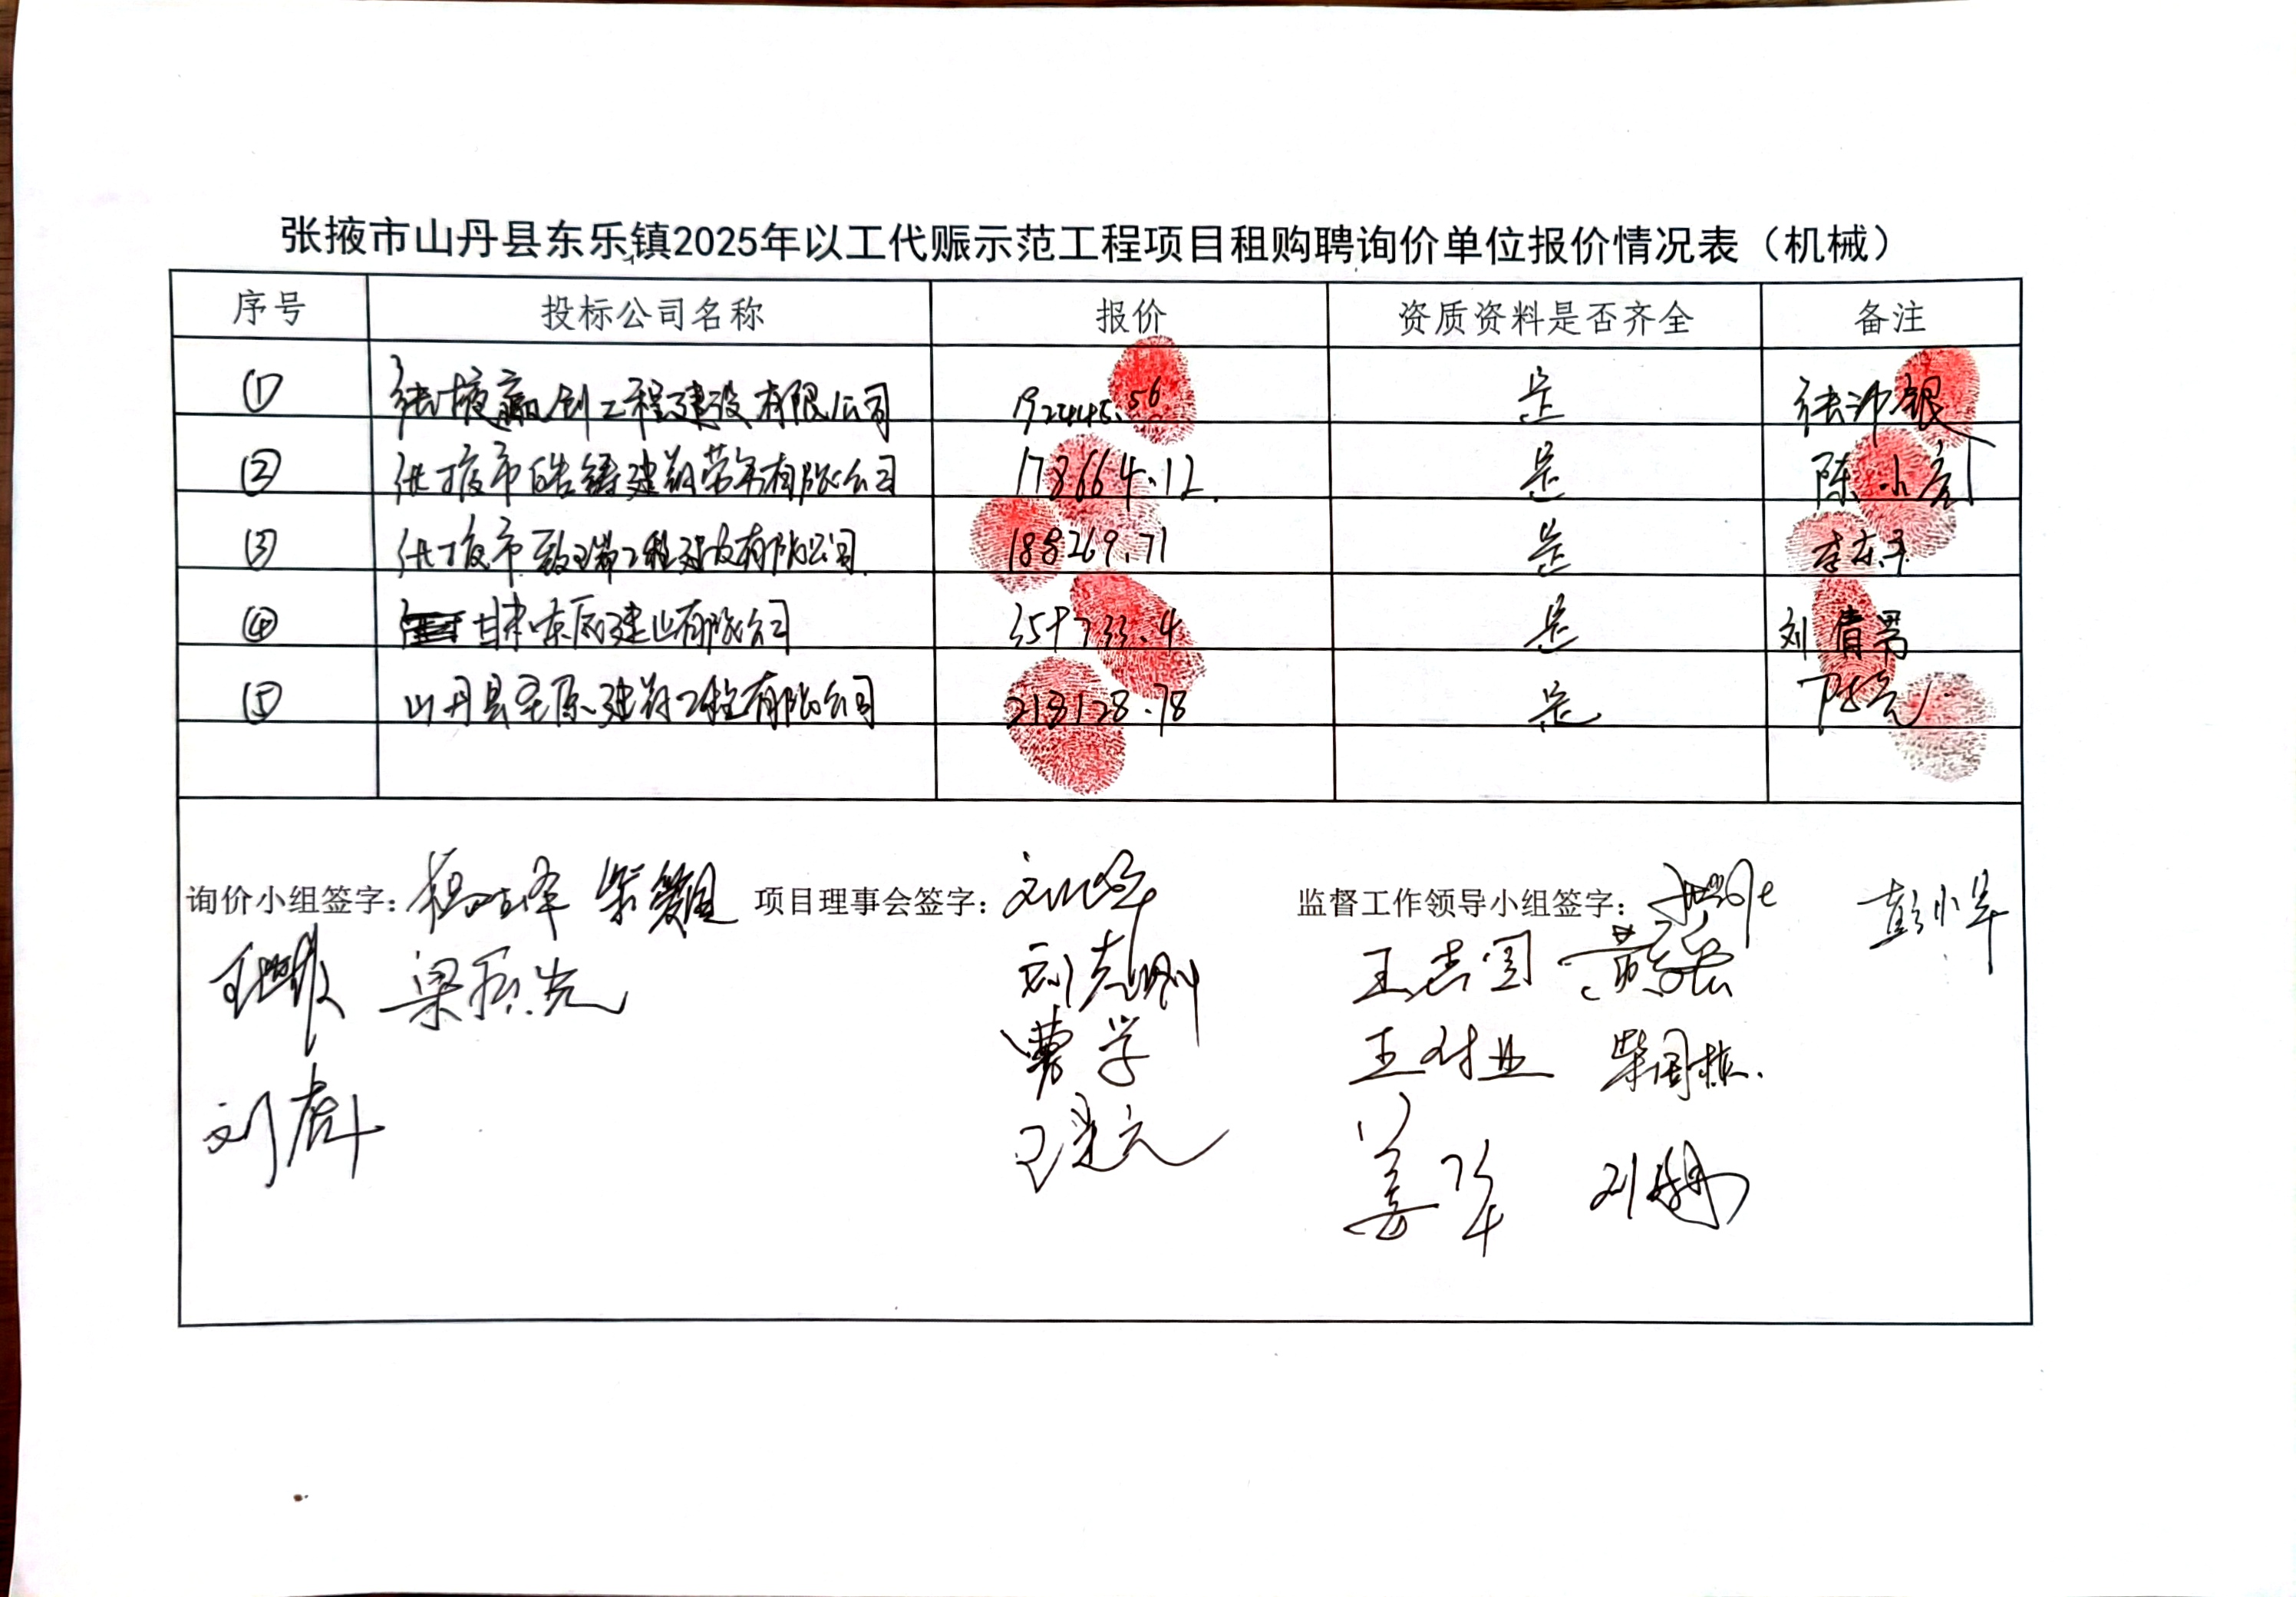 张掖市山丹县东乐镇2025年以工代赈示范工程项目租购聘询价单位报价情况表（机械）
序号 投标公司名称 报价 资质资料是否齐全 备注
① 张掖赢创工程建设有限公司 192445.56 是 张沛银
② 张掖市皓铸建筑劳务有限公司 178664.12 是 陈小刚
③ 张掖市致瑞工程建设有限公司 188269.71 是
④ 甘肃东辰建业有限公司 是 刘倩男
⑤ 山丹县至原建筑工程有限公司 218128.78 是 陈亮
询价小组签字： 项目理事会签字： 监督工作领导小组签字： 彭小军
刘志刚 王吉国
曹学 王对业 柴国栋
刘虎